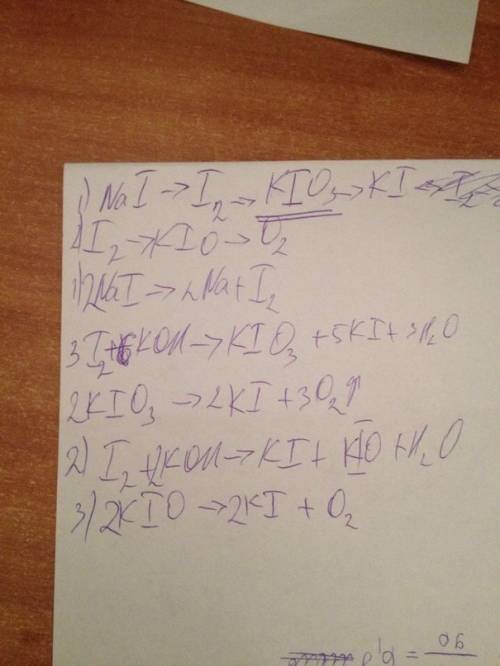 1) NaI → I₂ → KIO₃ → KI
2) I₂ → KIO → O₂
1) 2NaI → 2Na + I₂
3I₂ + 6KOH → KIO₃ + 5KI + 3H₂O
2KIO₃ → 2KI + 3O₂↑
2) I₂ + 2KOH → KI + KIO + H₂O
3) 2KIO → 2KI + O₂